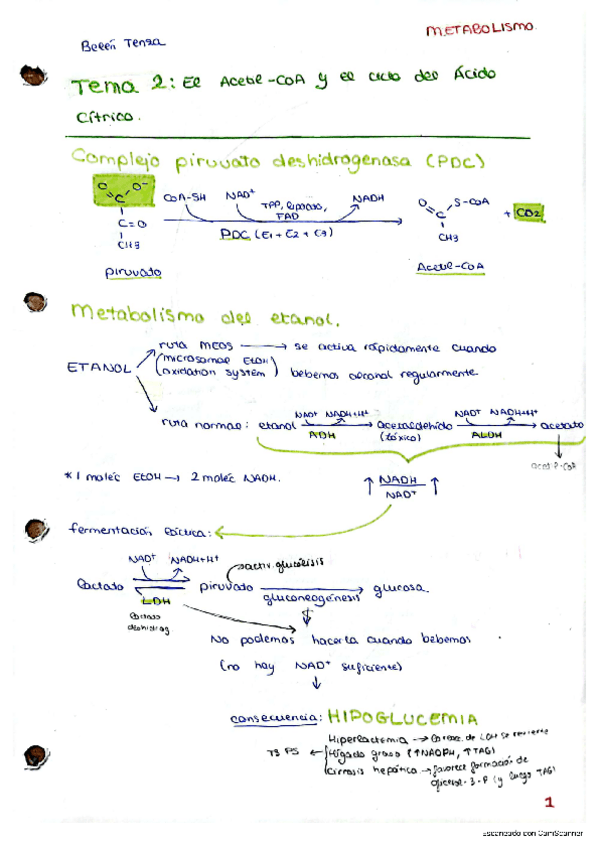 METABOLISMO.
Belén Tensa
Tema 2: El Acetil-CoA y el ciclo del Ácido
Cítrico.
Complejo piruvato deshidrogenasa (PDC)
O O⁻ C
C=O
CH3
piruvato
CoA-SH NAD⁺ TPP, lipoato, FAD NADH
PDC (E1 + E2 + E3)
O S-CoA C
CH3
Acetil-CoA
+ CO2
Metabolismo del etanol.
ETANOL
ruta MEOS → se activa rápidamente cuando
(microsomal EtOH oxidation system) bebemos alcohol regularmente.
ruta normal: etanol NAD⁺ NADH+H⁺ ADH acetaldehído (tóxico) NAD⁺ NADH+H⁺ ALDH acetato
acetil-CoA
* 1 moléc EtOH → 2 moléc NADH.
↑ NADH / NAD⁺ ↑
fermentación láctica:
NAD⁺ NADH+H⁺ activ. glucólisis
lactato piruvato glucosa.
LDH gluconeogénesis
lactato
deshidrog
No podemos hacerla cuando bebemos
(no hay NAD⁺ suficiente)
↓
consecuencia: HIPOGLUCEMIA
Hiperlactemia → la reacc. de LDH se revierte
Hígado graso (↑NADPH, ↑TAG)
Cirrosis hepática → favorece formación de
glicerol-3-P (y luego TAG)
1
Escaneado con CamScanner